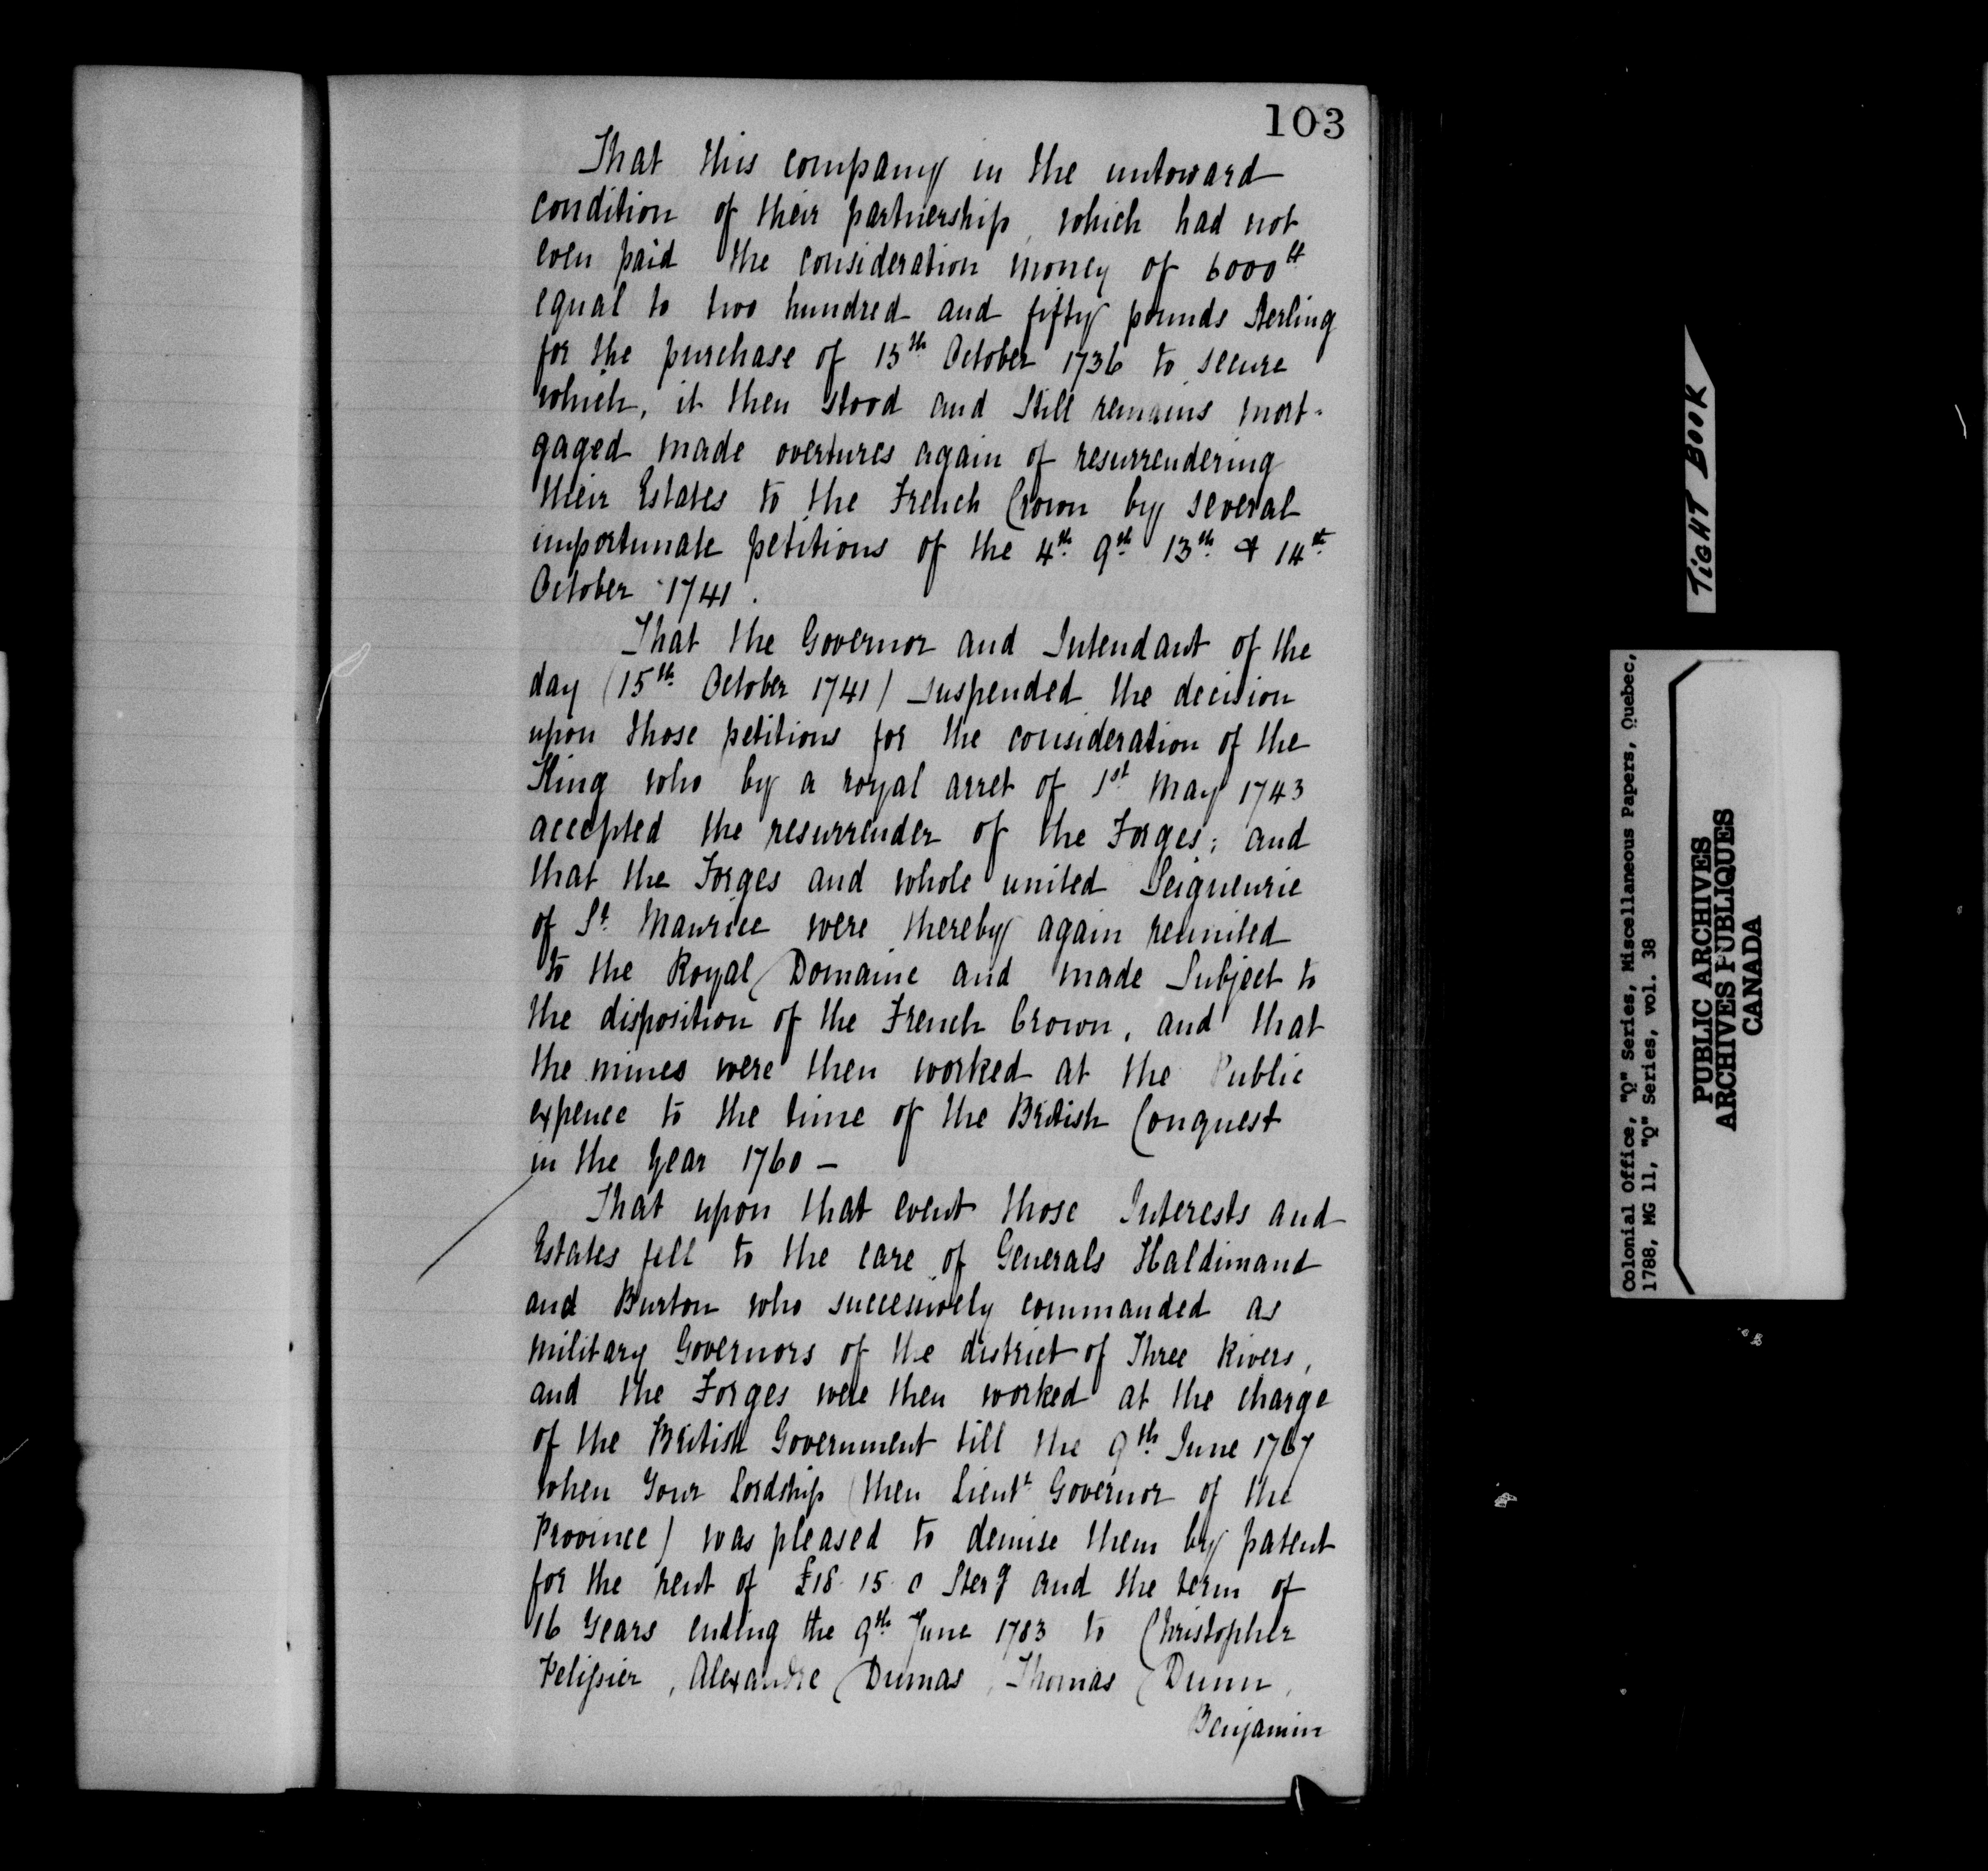 103
That this company in the untoward
condition of their partnership, which had not
even paid the consideration money of 6000ᵗᵗ
equal to two hundred and fifty pounds Sterling
for the purchase of 15th October 1736 to secure
which, it then stood and still remains mort-
gaged made overtures again of resurrendering
their Estates to the French Crown by several
importunate petitions of the 4th 9th 13th & 14th
October 1741.
That the Governor and Intendant of the
day (15th October 1741) suspended the decision
upon those petitions for the consideration of the
King who by a royal arret of 1st May 1743
accepted the resurrender of the Forges; and
that the Forges and whole united Seigneurie
of St. Maurice were thereby again reunited
to the Royal Domaine and made Subject to
the disposition of the French Crown, and that
the mines were then worked at the Public
expence to the time of the British Conquest
in the Year 1760 —
That upon that event those Interests and
Estates fell to the care of Generals Haldimand
and Burton who successively commanded as
military Governors of the district of Three Rivers,
and the Forges were then worked at the charge
of the British Government till the 9th June 1767
when Your Lordship (then Lieut. Governor of the
Province) was pleased to demise them by patent
for the rent of £18. 15. 0 Sterg and the term of
16 Years ending the 9th June 1783 to Christopher
Pelissier, Alexandre Dumas, Thomas Dunn,
Benjamin
TIGHT BOOK
Colonial Office, "Q" Series, Miscellaneous Papers, Quebec,
1788, MG 11, "Q" Series, vol. 38
PUBLIC ARCHIVES
ARCHIVES PUBLIQUES
CANADA